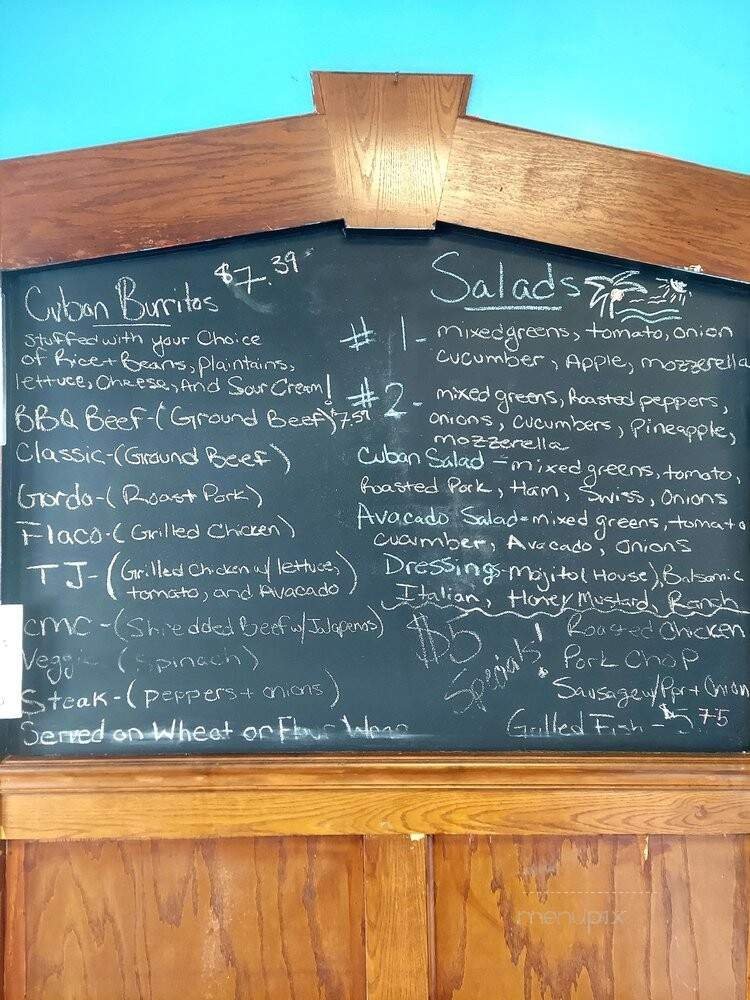 Cuban Burritos $7.39
Stuffed with your Choice
of Rice + Beans, Plaintains,
lettuce, Cheese, And Sour Cream!
BBQ Beef-(Ground Beef) $7.59
Classic-(Ground Beef)
Gordo-(Roast Pork)
Flaco-(Grilled Chicken)
TJ-(Grilled Chicken w/ lettuce,
tomato, and Avacado)
CMC-(Shredded Beef w/ Jalapenos)
Veggi (Spinach)
Steak-(peppers + onions)
Served on Wheat or Flour Wrap
Salads
#1- mixed greens, tomato, onion
cucumber, Apple, mozzerella
#2- mixed greens, Roasted peppers,
onions, cucumbers, Pineapple,
mozzerella
Cuban Salad - mixed greens, tomato,
Roasted Pork, Ham, Swiss, Onions
Avacado Salad - mixed greens, tomato
cucumber, Avacado, onions
Dressings - Mojito (House), Balsamic
Italian, Honey Mustard, Ranch
$5 Specials!
Roasted Chicken
Pork Chop
Sausage w/ Ppr + Onion
Grilled Fish - $5.75
menupix